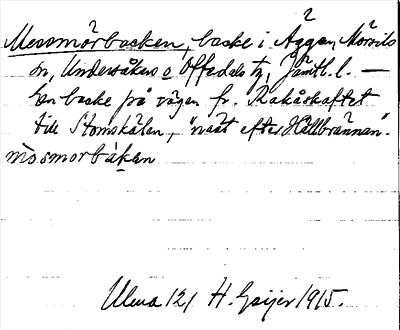 Messmörbacken, backe i Äggen, Mörsils
sn, Undersåkers o Offerdals tg, Jämtl. l. —
En backe på vägen fr. Rakåskaftet
till Stomskålen, "näst efter Hållbrännan".
mòsmorbàken
Ulma 121 H. Geijer 1915.